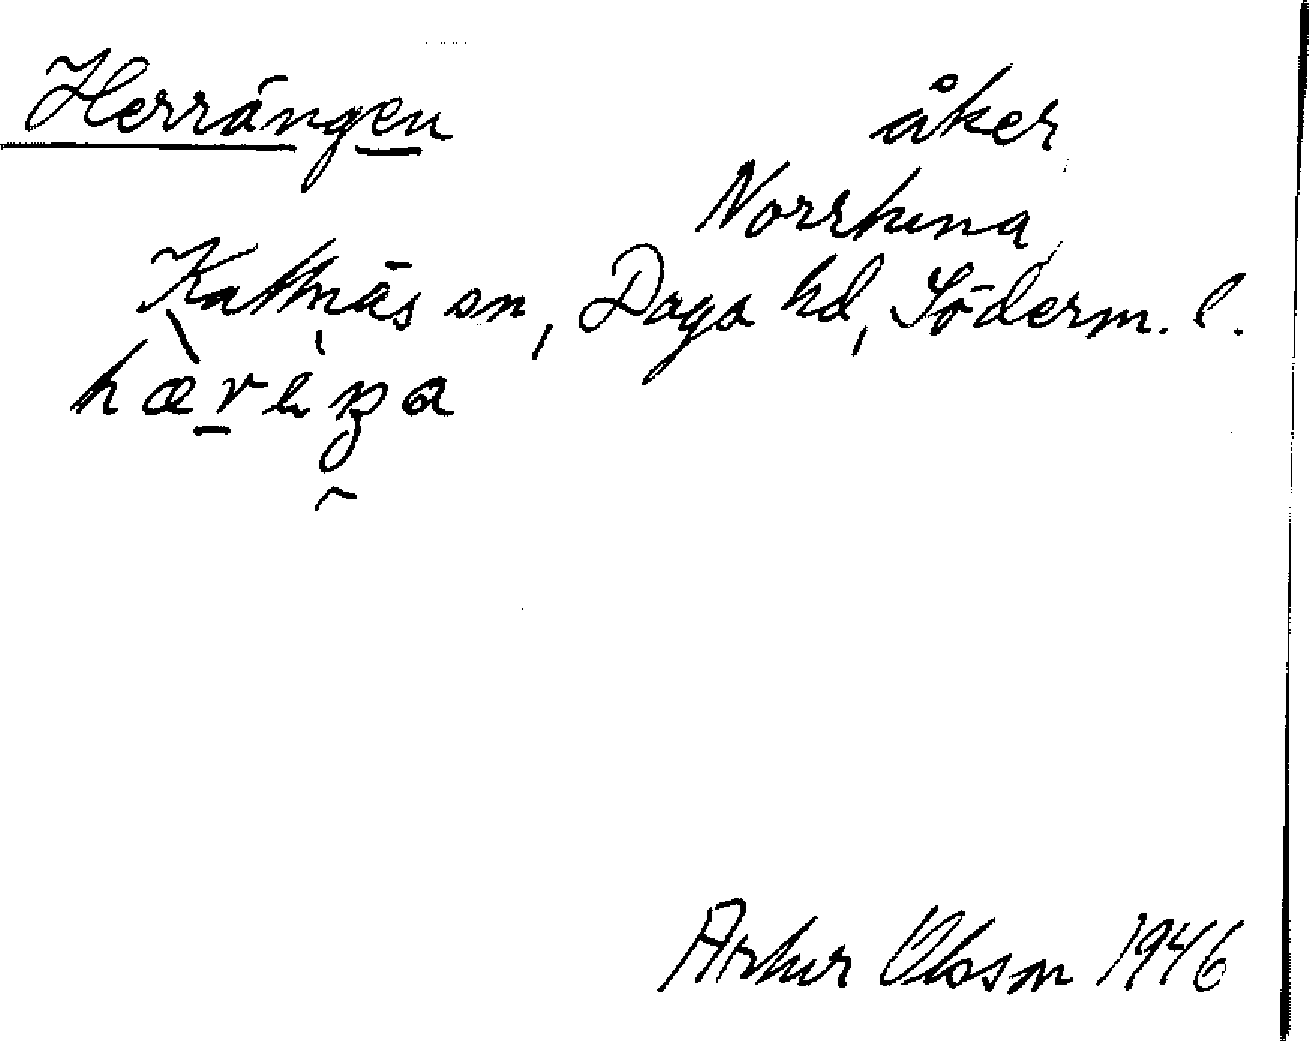 Herrängen
åker
Norrtuna
Kattnäs sn, Daga hd, Söderm. l.
Artur Olsson 1946